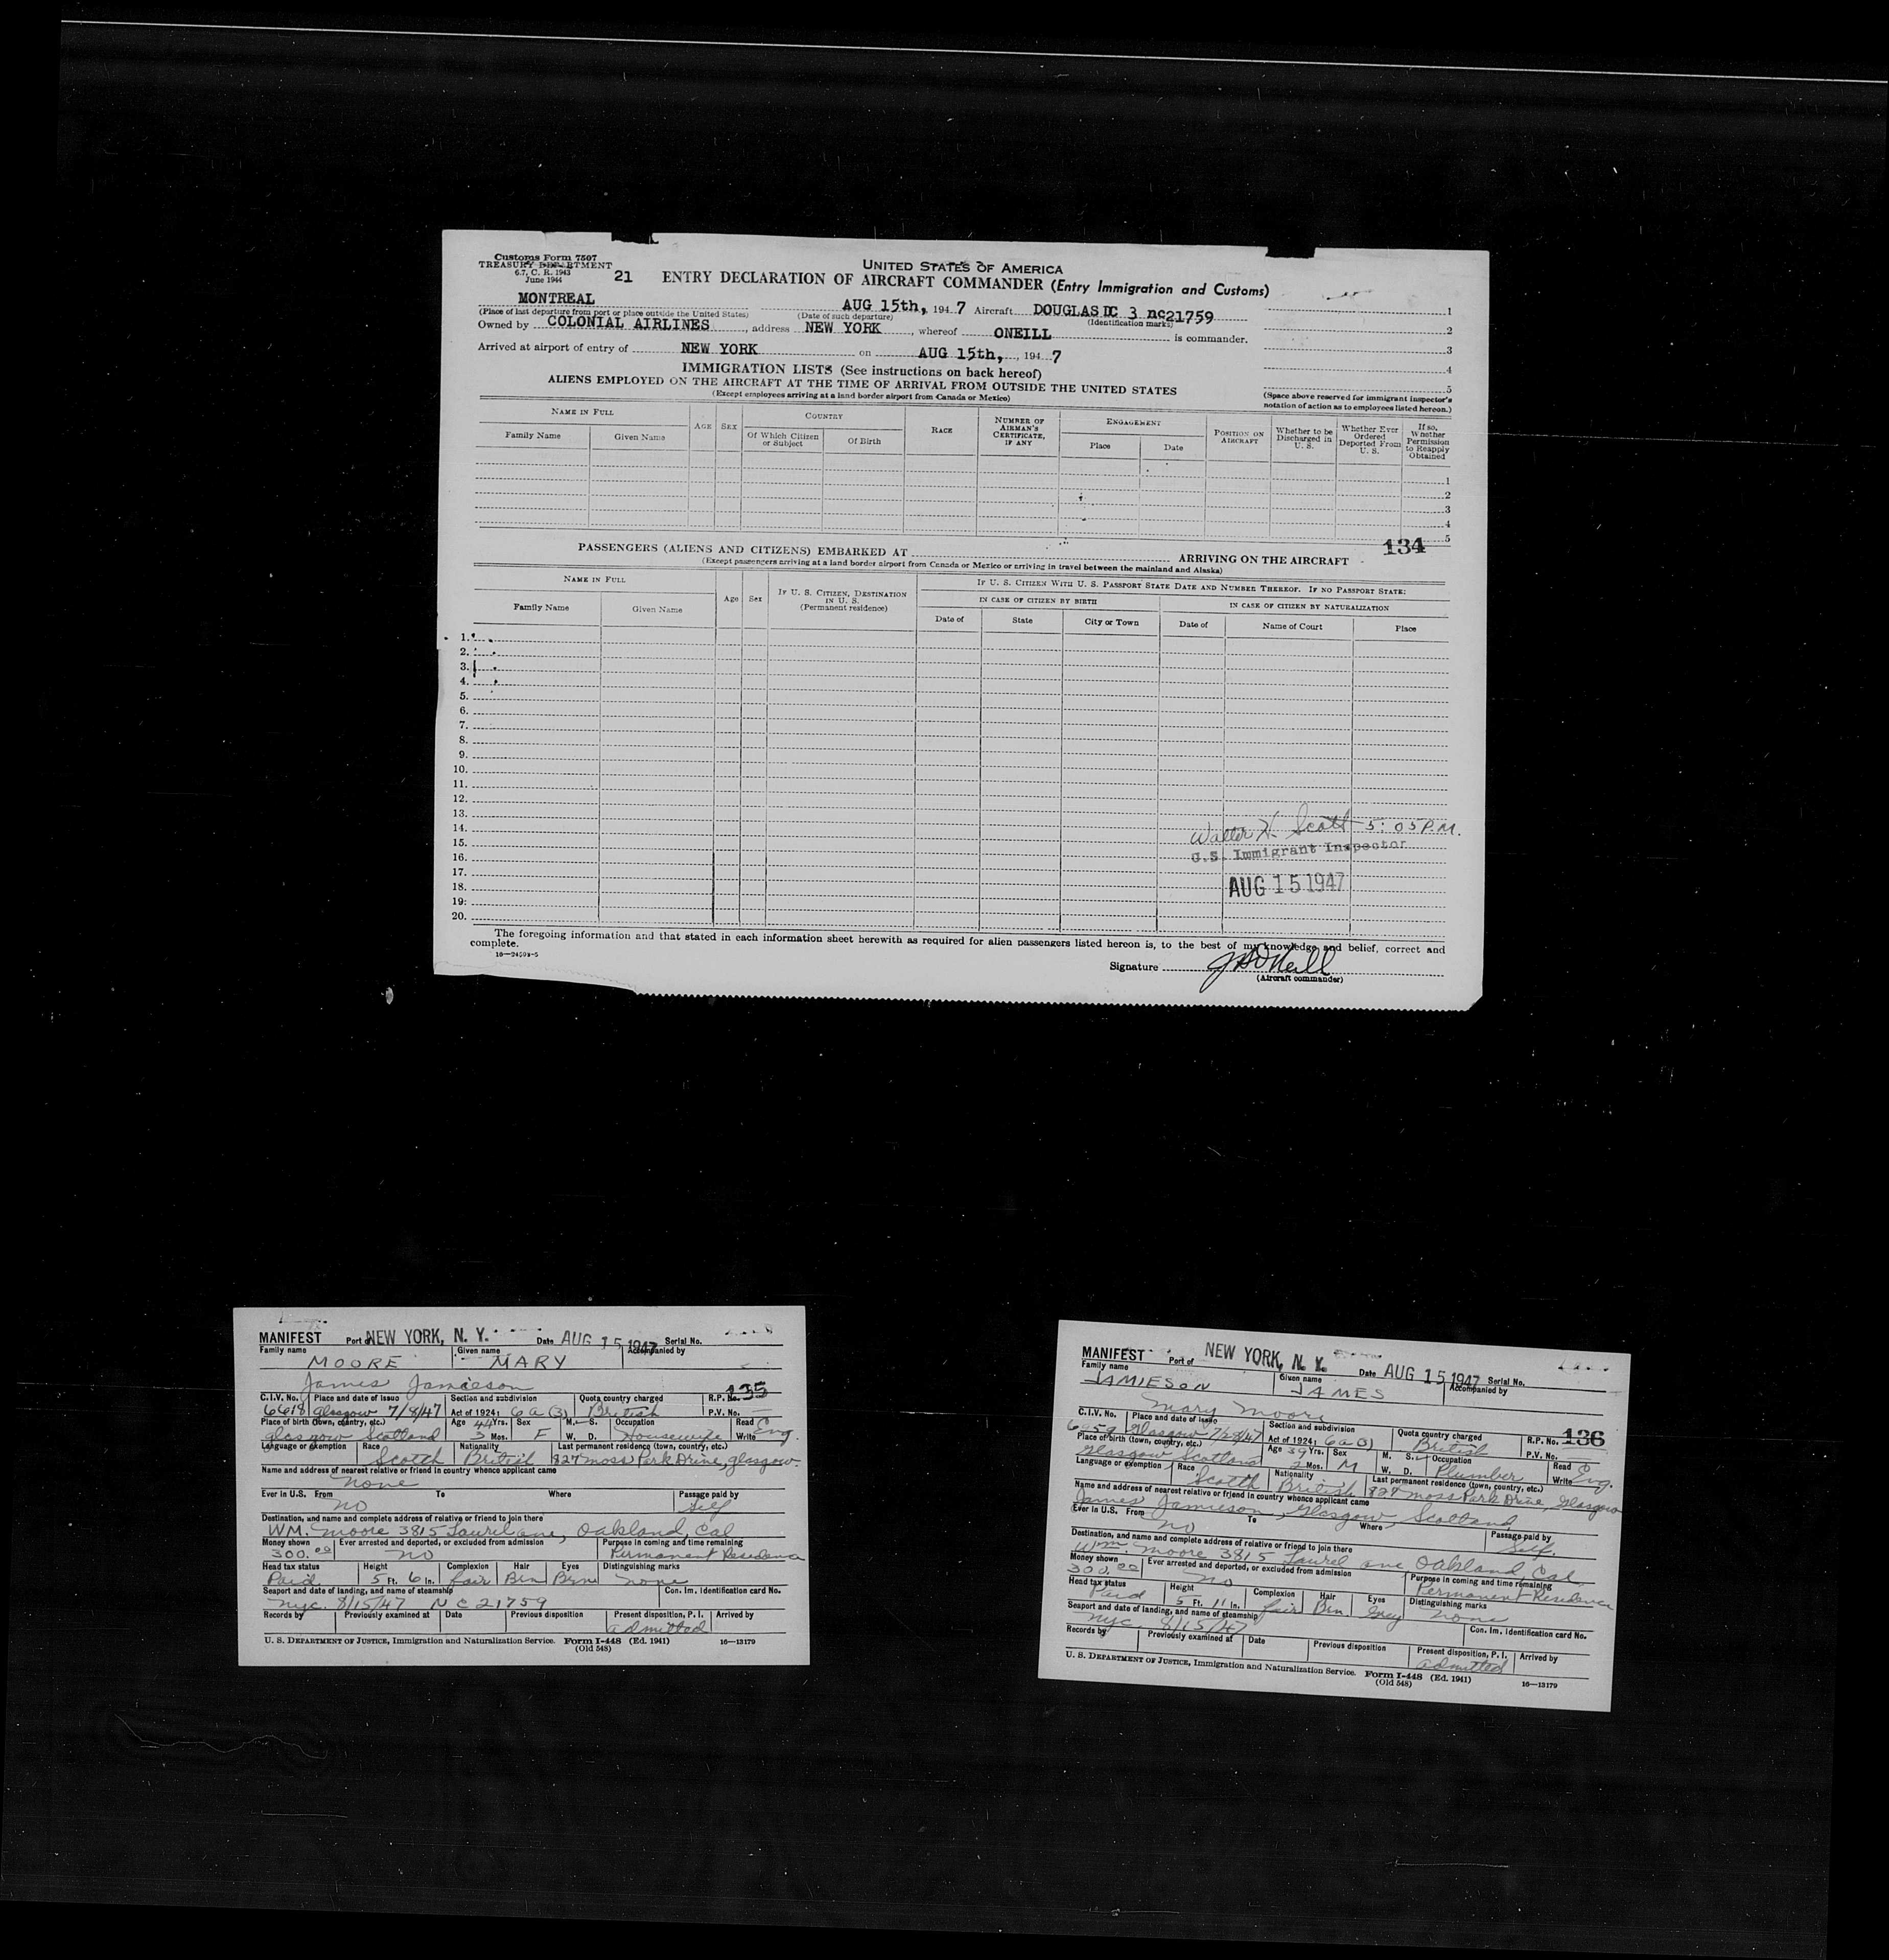 Customs Form 7507
TREASURY DEPARTMENT
6.7, C. R. 1943
June 1944
21
UNITED STATES OF AMERICA
ENTRY DECLARATION OF AIRCRAFT COMMANDER (Entry Immigration and Customs)
MONTREAL AUG 15th, 194 7 Aircraft DOUGLAS DC 3 nc21759 1
(Place of last departure from port or place outside the United States) (Date of such departure) (Identification marks)
Owned by COLONIAL AIRLINES, address NEW YORK, whereof ONEILL is commander. 2
3
Arrived at airport of entry of NEW YORK on AUG 15th, 194 7
4
IMMIGRATION LISTS (See instructions on back hereof)
5
ALIENS EMPLOYED ON THE AIRCRAFT AT THE TIME OF ARRIVAL FROM OUTSIDE THE UNITED STATES
(Except employees arriving at a land border airport from Canada or Mexico)
(Space above reserved for immigrant inspector's notation of action as to employees listed hereon.)
NAME IN FULL AGE SEX COUNTRY RACE NUMBER OF AIRMAN'S CERTIFICATE, IF ANY ENGAGEMENT POSITION ON AIRCRAFT Whether to be Discharged in U. S. Whether Ever Ordered Deported From U. S. If so, Whether Permission to Reapply Obtained
Family Name Given Name Of Which Citizen or Subject Of Birth Place Date
1
2
3
4
5
134
PASSENGERS (ALIENS AND CITIZENS) EMBARKED AT ARRIVING ON THE AIRCRAFT
(Except passengers arriving at a land border airport from Canada or Mexico or arriving in travel between the mainland and Alaska)
NAME IN FULL Age Sex IF U. S. CITIZEN, DESTINATION IN U. S. (Permanent residence) IF U. S. CITIZEN WITH U. S. PASSPORT STATE DATE AND NUMBER THEREOF. IF NO PASSPORT STATE:
IN CASE OF CITIZEN BY BIRTH IN CASE OF CITIZEN BY NATURALIZATION
Family Name Given Name Date of State City or Town Date of Name of Court Place
1.
2.
3.
4.
5.
6.
7.
8.
9.
10.
11.
12.
13.
14. Walter H. Scott 5:05 P.M.
15. U.S. Immigrant Inspector
16.
17. AUG 15 1947
18.
19.
20.
The foregoing information and that stated in each information sheet herewith as required for alien passengers listed hereon is, to the best of my knowledge and belief, correct and
complete.
Signature J H O'Neill
(Aircraft commander)
MANIFEST Port of NEW YORK, N. Y. Date AUG 15 1947 Serial No.
Family name Given name Accompanied by
MOORE MARY
James Jamieson
135
C.I.V. No. Place and date of issue Section and subdivision Quota country charged R.P. No.
6618 Glasgow 7/8/47 Act of 1924: 6 a (3) British P.V. No.
Place of birth (town, country, etc.) Age 44 Yrs. Sex M. S. Occupation Read Eng.
Glasgow Scotland 3 Mos. F W. D. Housewife Write
Language or exemption Race Nationality Last permanent residence (town, country, etc.)
Scotch British 827 Moss Park Drive, Glasgow
Name and address of nearest relative or friend in country whence applicant came
None
Ever in U.S. From To Where Passage paid by
No Self
Destination, and name and complete address of relative or friend to join there
WM. Moore 3815 Laurel ave, Oakland, Cal
Money shown Ever arrested and deported, or excluded from admission Purpose in coming and time remaining
300.00 No Permanent Residence
Head tax status Height Complexion Hair Eyes Distinguishing marks
Paid 5 Ft. 6 In. fair Brn Brn none
Seaport and date of landing, and name of steamship Con. Im. Identification card No.
nyc. 8/15/47 NC 21759
Records by Previously examined at Date Previous disposition Present disposition, P. I. Arrived by
admitted
U. S. DEPARTMENT OF JUSTICE, Immigration and Naturalization Service. Form I-448 (Ed. 1941) 16—13179
(Old 548)
MANIFEST Port of NEW YORK, N. Y. Date AUG 15 1947 Serial No.
Family name Given name Accompanied by
JAMIESON JAMES
Mary Moore
136
C.I.V. No. Place and date of issue Section and subdivision Quota country charged R.P. No.
6959 Glasgow 7/28/47 Act of 1924: 6 a (3) British P.V. No.
Place of birth (town, country, etc.) Age 39 Yrs. Sex M. S. Occupation Read Eng.
Glasgow Scotland 2 Mos. M W. D. Plumber Write
Language or exemption Race Nationality Last permanent residence (town, country, etc.)
Scotch British 827 Moss Park Drive Glasgow
Name and address of nearest relative or friend in country whence applicant came
James Jamieson, Glasgow, Scotland
Ever in U.S. From To Where Passage paid by
No Self.
Destination, and name and complete address of relative or friend to join there
Wm. Moore 3815 Laurel ave Oakland Cal
Money shown Ever arrested and deported, or excluded from admission Purpose in coming and time remaining
300.00 No Permanent Residence
Head tax status Height Complexion Hair Eyes Distinguishing marks
Paid 5 Ft. 11 In. fair Brn Grey none
Seaport and date of landing, and name of steamship Con. Im. Identification card No.
nyc 8/15/47
Records by Previously examined at Date Previous disposition Present disposition, P. I. Arrived by
admitted
U. S. DEPARTMENT OF JUSTICE, Immigration and Naturalization Service. Form I-448 (Ed. 1941) 16—13179
(Old 548)